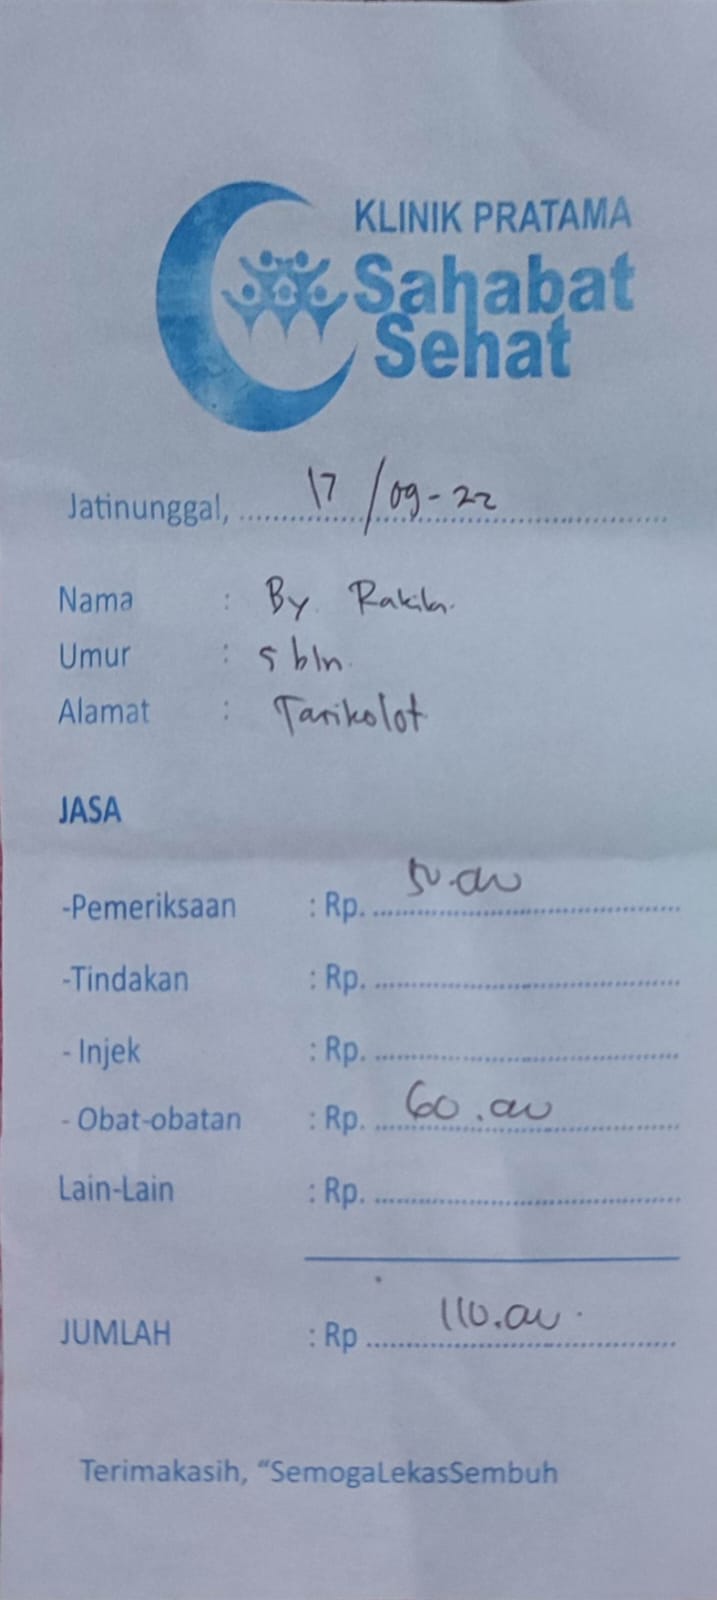 KLINIK PRATAMA
Sahabat
Sehat
Jatinunggal, 17/09-22
Nama : By. Rakila.
Umur : 5 bln.
Alamat : Tarikolot
JASA
-Pemeriksaan : Rp. 50.000
-Tindakan : Rp.
- Injek : Rp.
- Obat-obatan : Rp. 60.000
Lain-Lain : Rp.
JUMLAH : Rp 110.000.
Terimakasih, “SemogaLekasSembuh